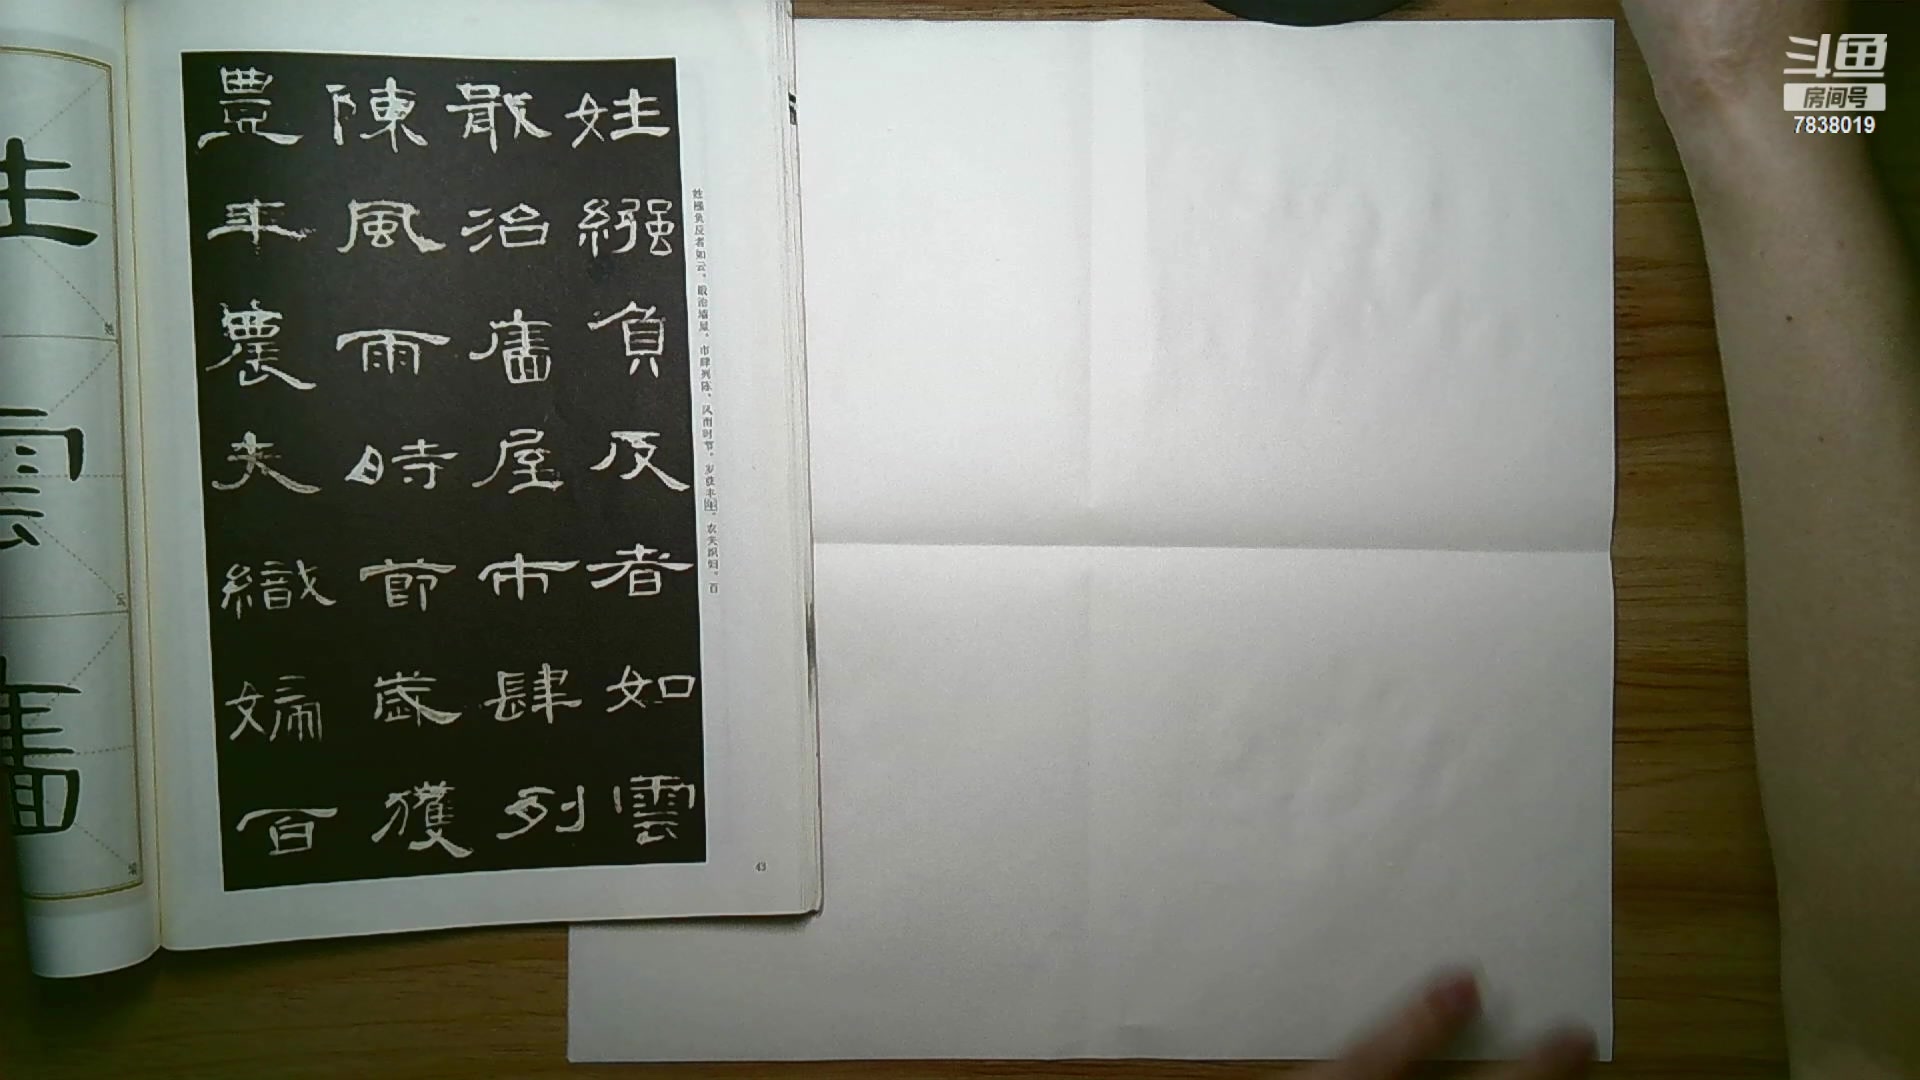 姓繦負反者如雲
戢治廧屋市肆列
陳風雨時節歲獲
豐年農夫織婦百
姓繦负反者如云。戢治墙屋，市肆列陈。风雨时节，岁获丰年。农夫织妇，百
43
姓
雲
廧
姓
云
墙
斗鱼
房间号
7838019